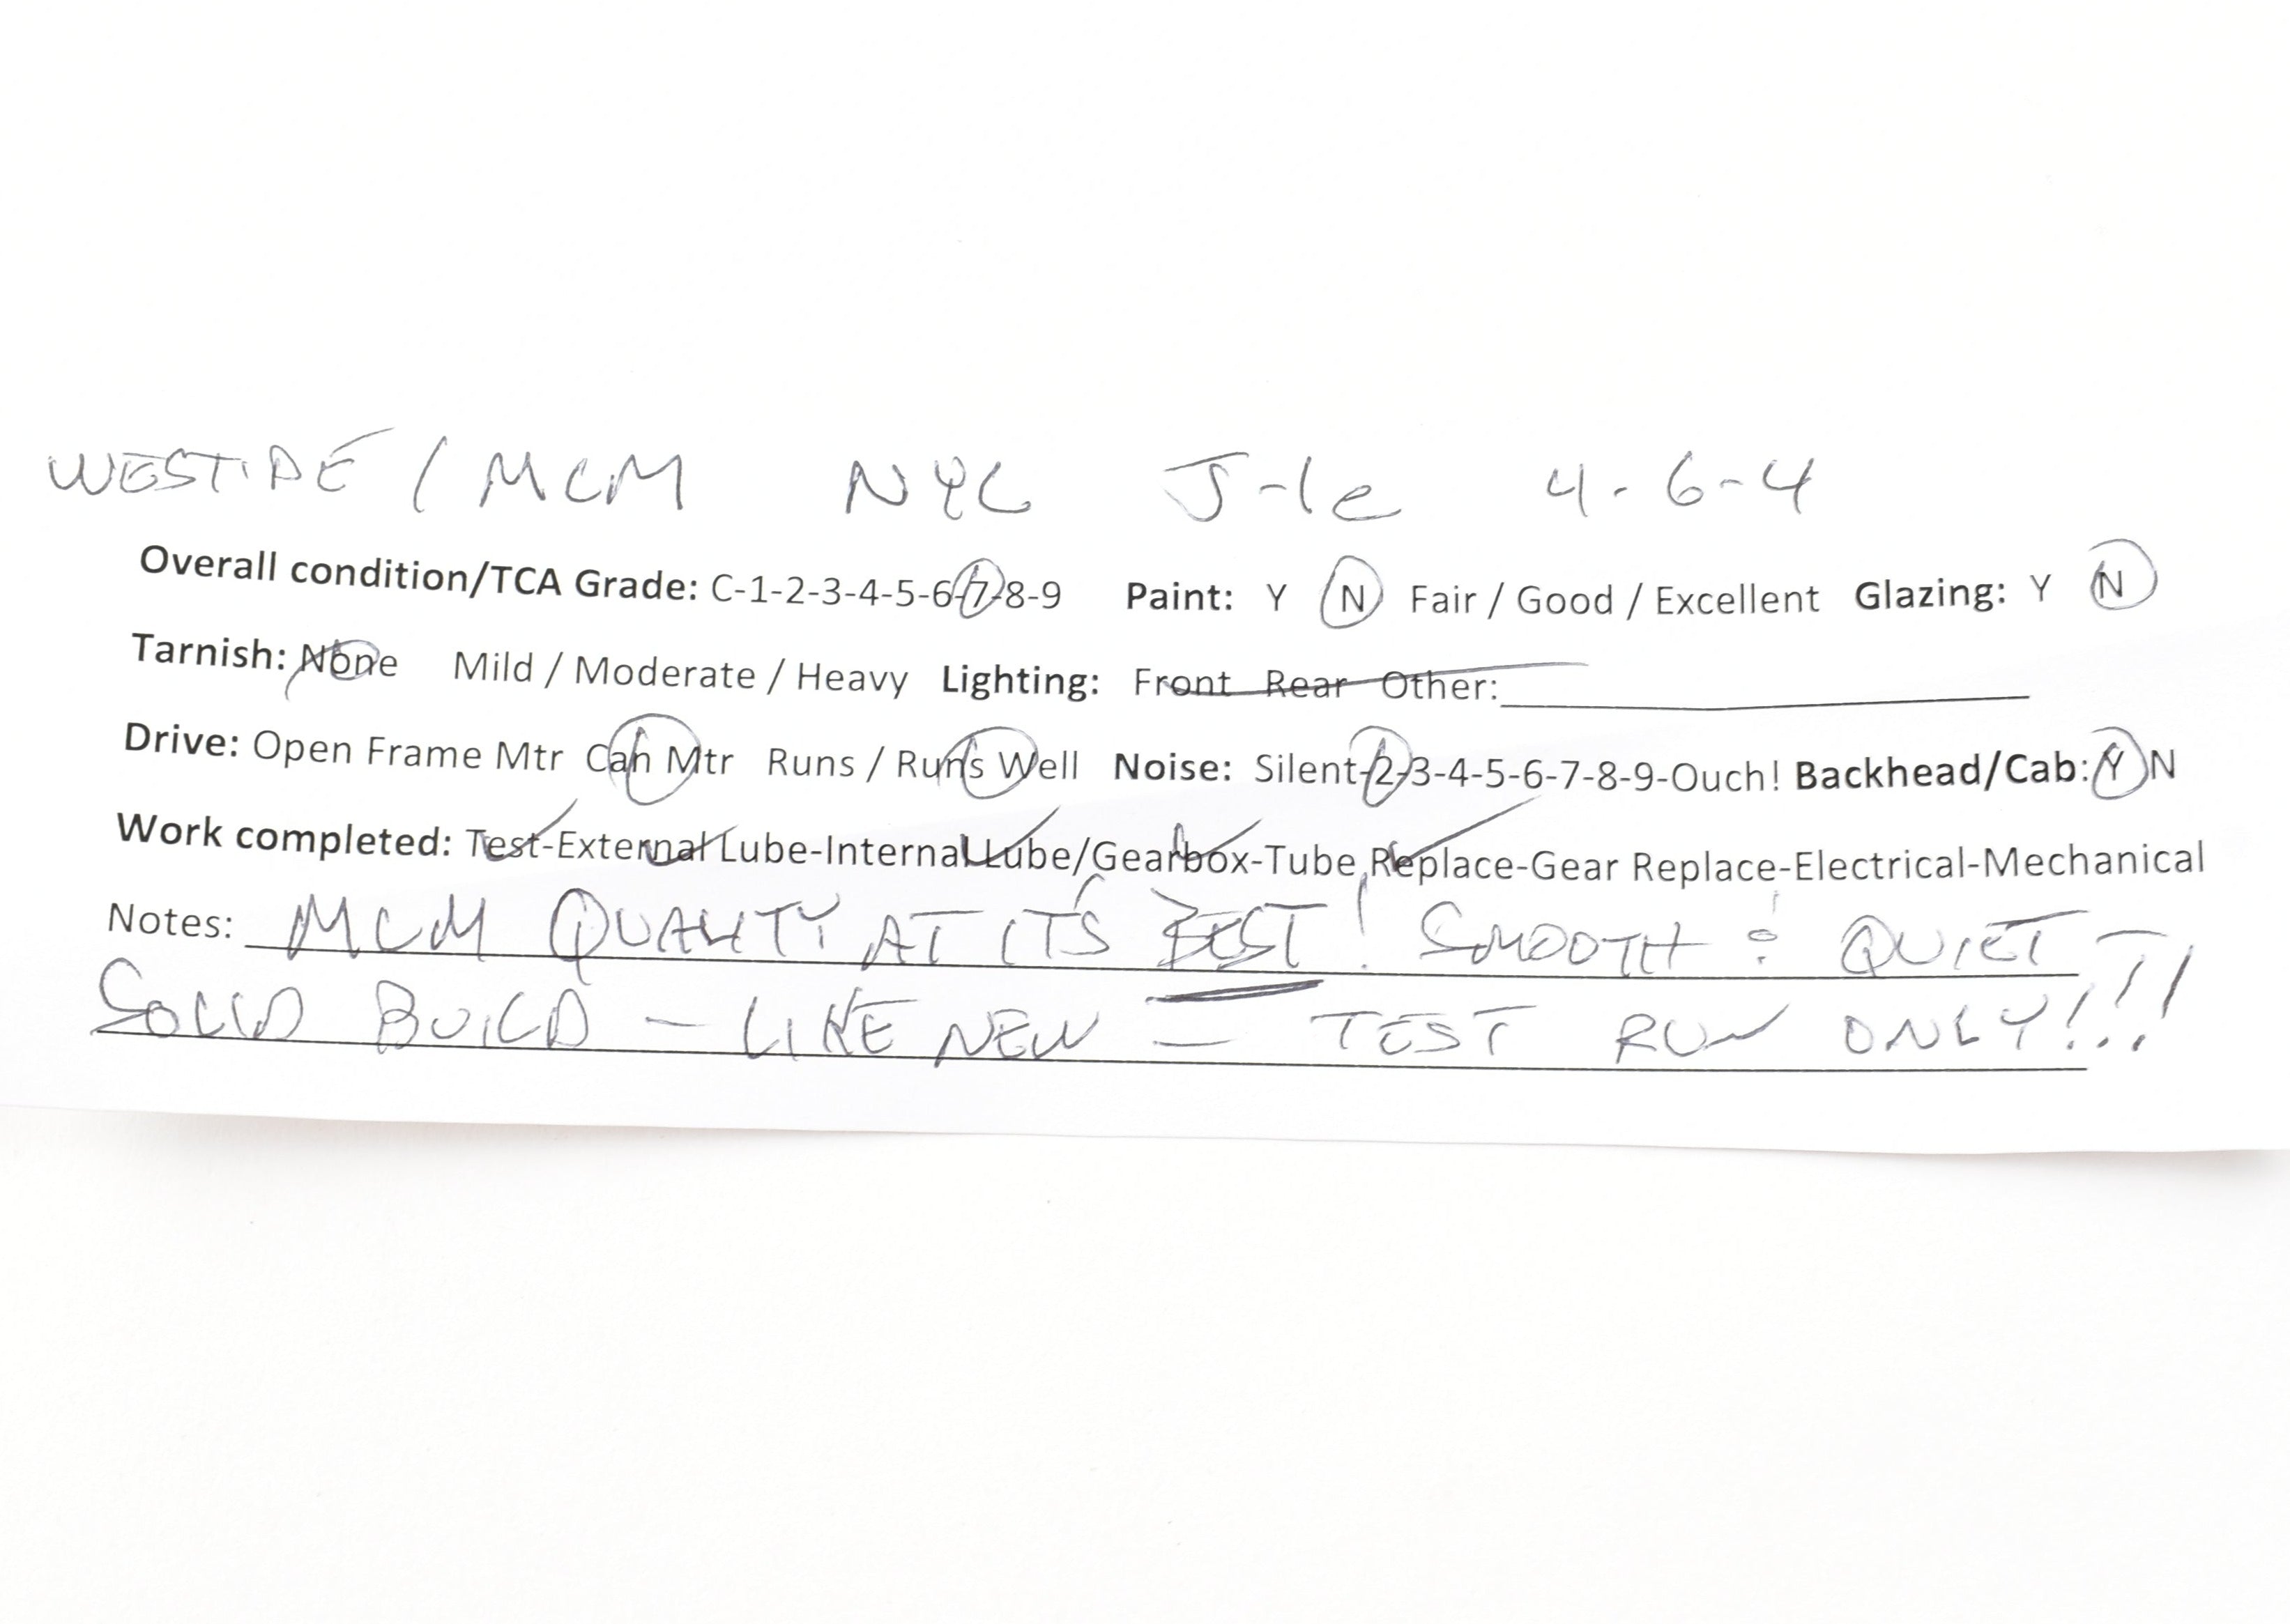 WESTIDE / MCM NYC J-1e 4-6-4
Overall condition/TCA Grade: C-1-2-3-4-5-6-7-8-9 Paint: Y N Fair / Good / Excellent Glazing: Y N
Tarnish: None Mild / Moderate / Heavy Lighting: Front Rear Other:
Drive: Open Frame Mtr Can Mtr Runs / Runs Well Noise: Silent-2-3-4-5-6-7-8-9-Ouch! Backhead/Cab: Y N
Work completed: Test-External Lube-Internal Lube/Gearbox-Tube Replace-Gear Replace-Electrical-Mechanical
Notes: MCM QUALITY AT IT'S BEST! SMOOTH & QUIET –
SOLID BUILD – LIKE NEW – TEST RUN ONLY!!!